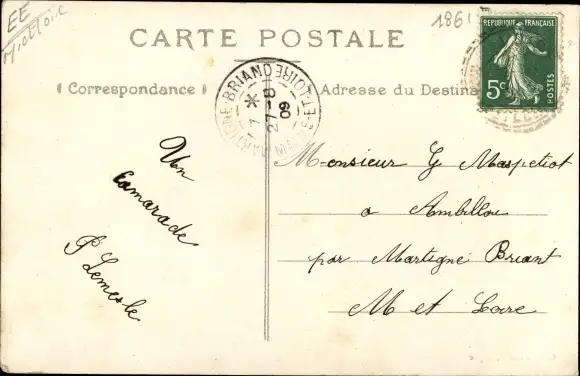 EE
1861
CARTE POSTALE
RÉPUBLIQUE FRANÇAISE
POSTES
5c
Correspondance
Adresse du Destina
MARTIGNÉ-BRIAND
MAINE-ET-LOIRE
27-8
09
Un
Camarade
P Lemesle
Monsieur G Maspetiot
a Ambillou
par Martigné Briant
M et Loire